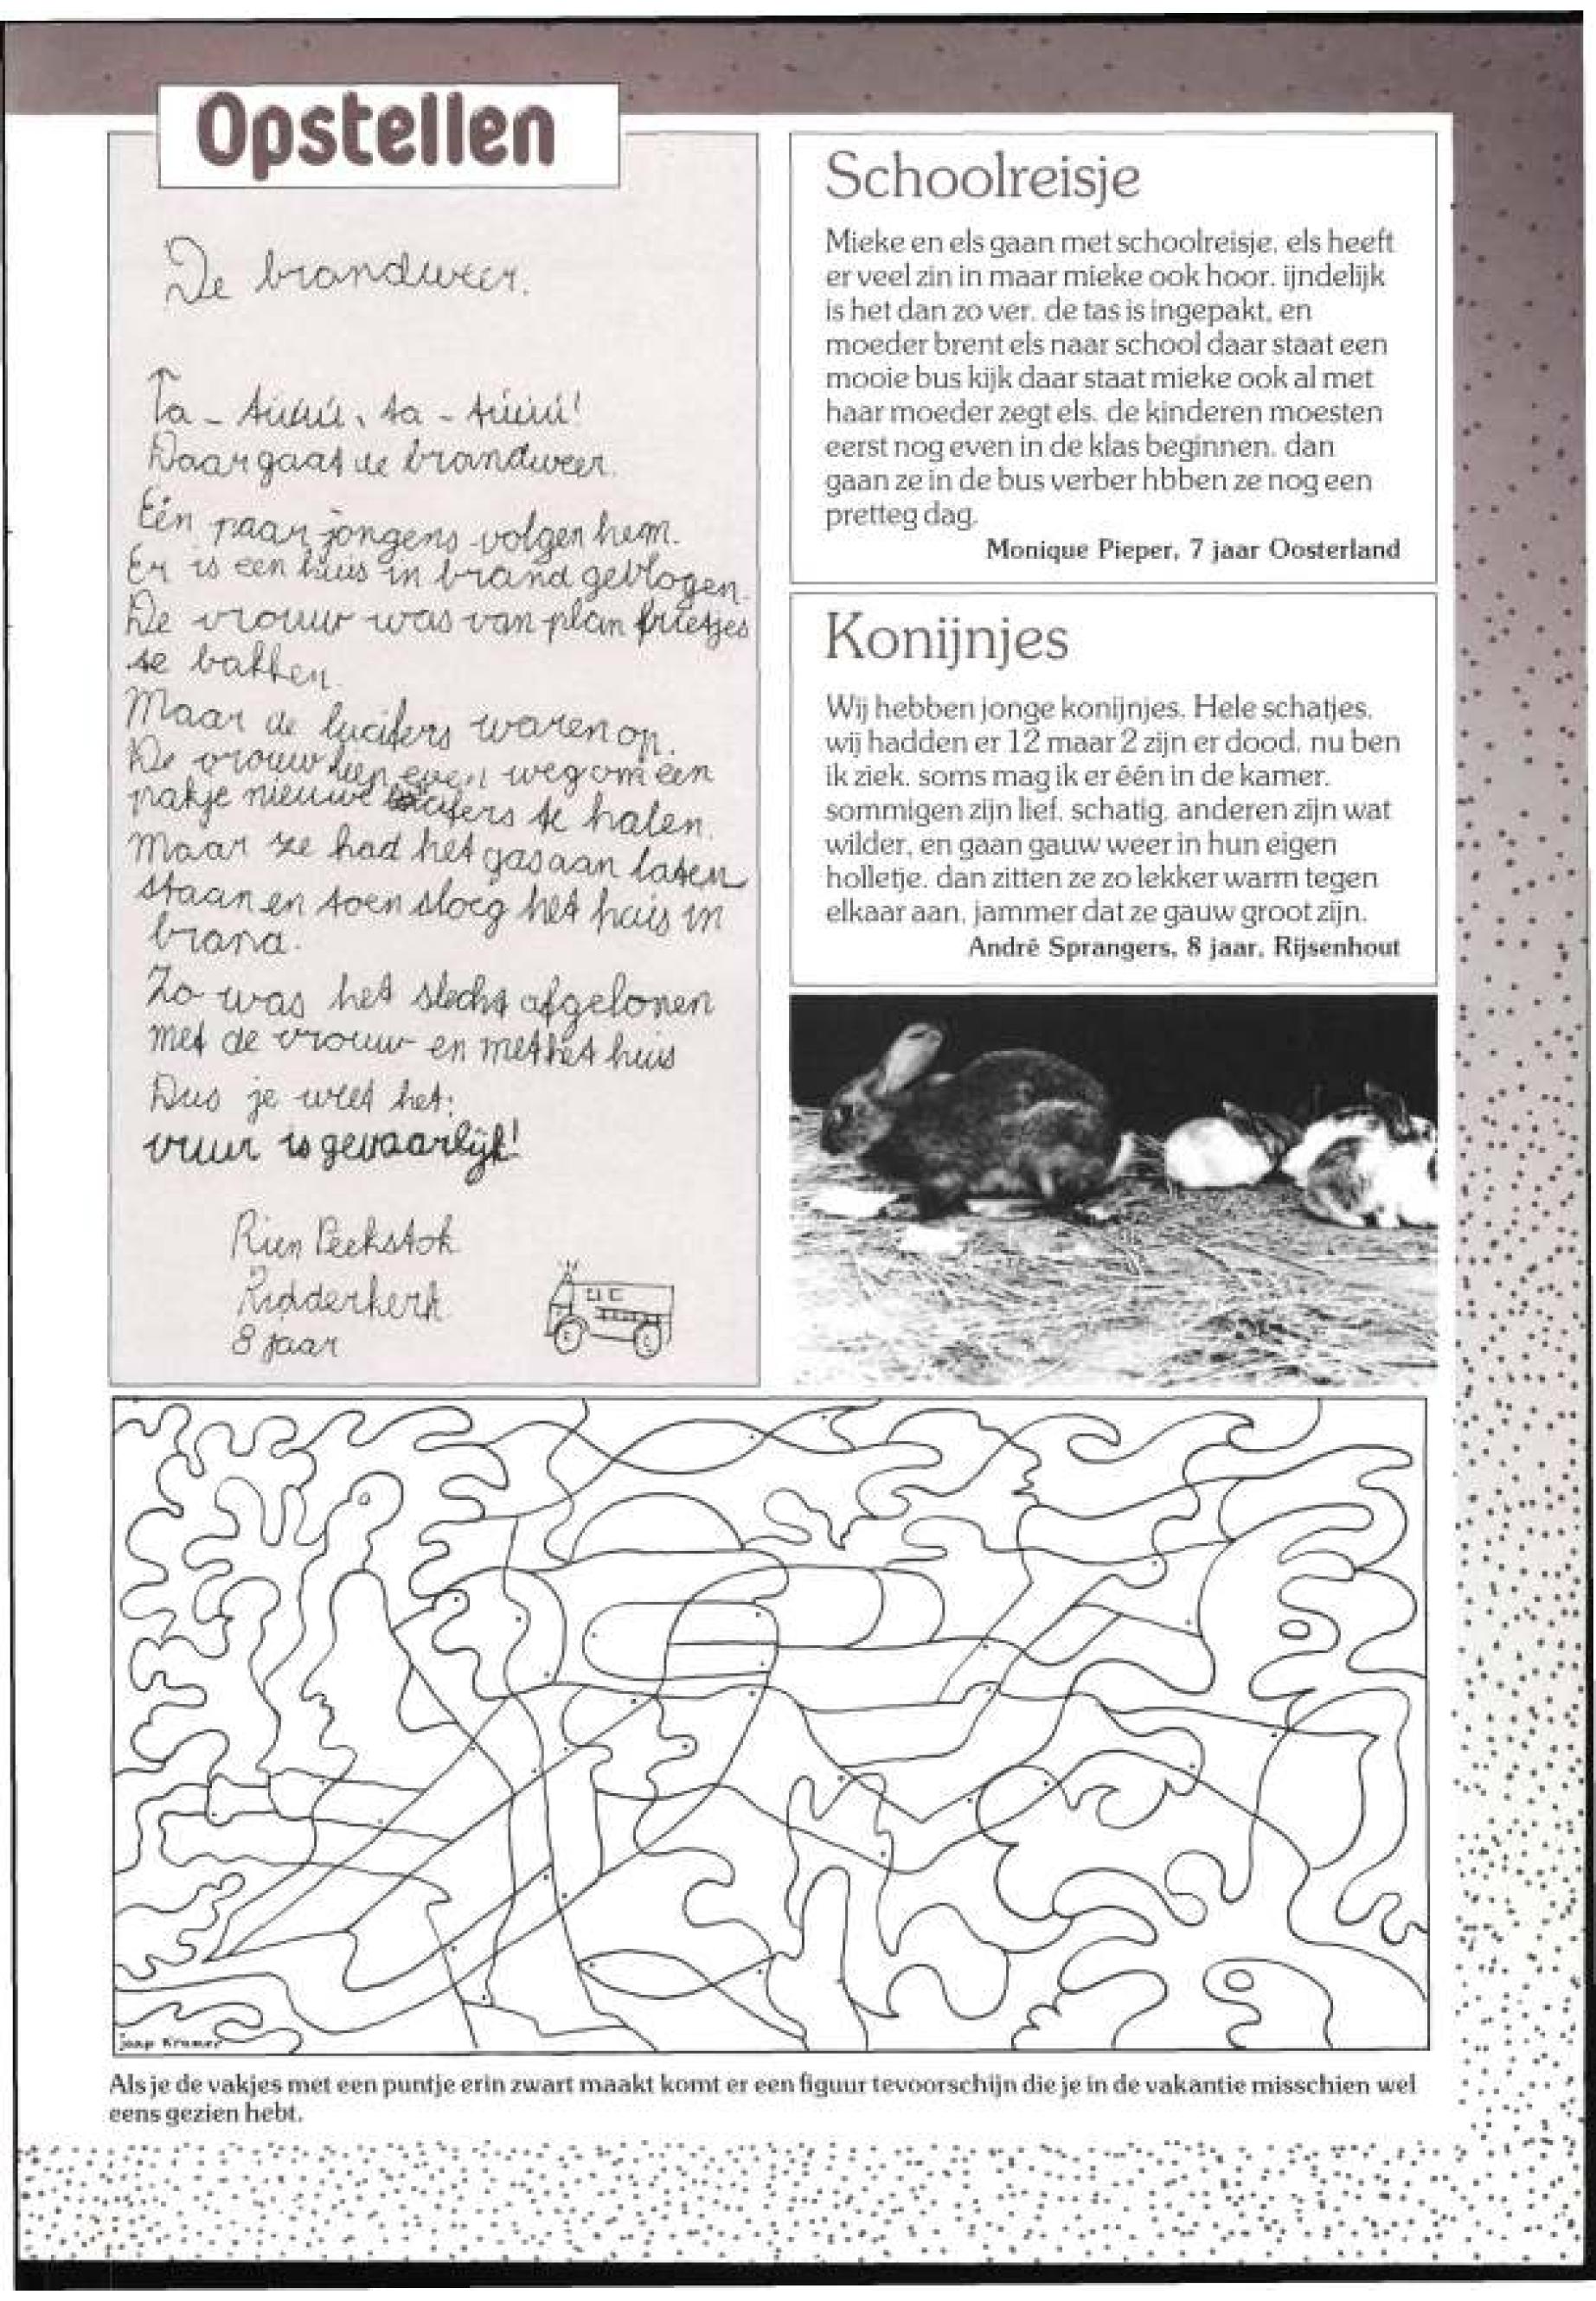 Opstellen
De brandweer.
Ta - tuuu, ta - tuuu!
Daar gaat de brandweer.
Eén paar jongens volgen hem.
Er is een huis in brand gevlogen.
De vrouw was van plan frietjes
te bakken.
Maar de lucifers waren op.
De vrouw liep even weg om een
pakje nieuwe lucifers te halen.
Maar ze had het gas aan laten
staan en toen sloeg het huis in
brand.
Zo was het slecht afgelopen
met de vrouw en met het huis
Dus je weet het:
vuur is gevaarlijk!
Rien Peekstok
Ridderkerk
8 jaar
Schoolreisje
Mieke en els gaan met schoolreisje. els heeft
er veel zin in maar mieke ook hoor. ijndelijk
is het dan zo ver. de tas is ingepakt, en
moeder brent els naar school daar staat een
mooie bus kijk daar staat mieke ook al met
haar moeder zegt els. de kinderen moesten
eerst nog even in de klas beginnen. dan
gaan ze in de bus verber hbben ze nog een
pretteg dag.
Monique Pieper, 7 jaar Oosterland
Konijnjes
Wij hebben jonge konijnjes. Hele schatjes.
wij hadden er 12 maar 2 zijn er dood. nu ben
ik ziek. soms mag ik er één in de kamer.
sommigen zijn lief. schatig. anderen zijn wat
wilder, en gaan gauw weer in hun eigen
holletje. dan zitten ze zo lekker warm tegen
elkaar aan, jammer dat ze gauw groot zijn.
André Sprangers, 8 jaar, Rijsenhout
Jaap Kramer
Als je de vakjes met een puntje erin zwart maakt komt er een figuur tevoorschijn die je in de vakantie misschien wel
eens gezien hebt.